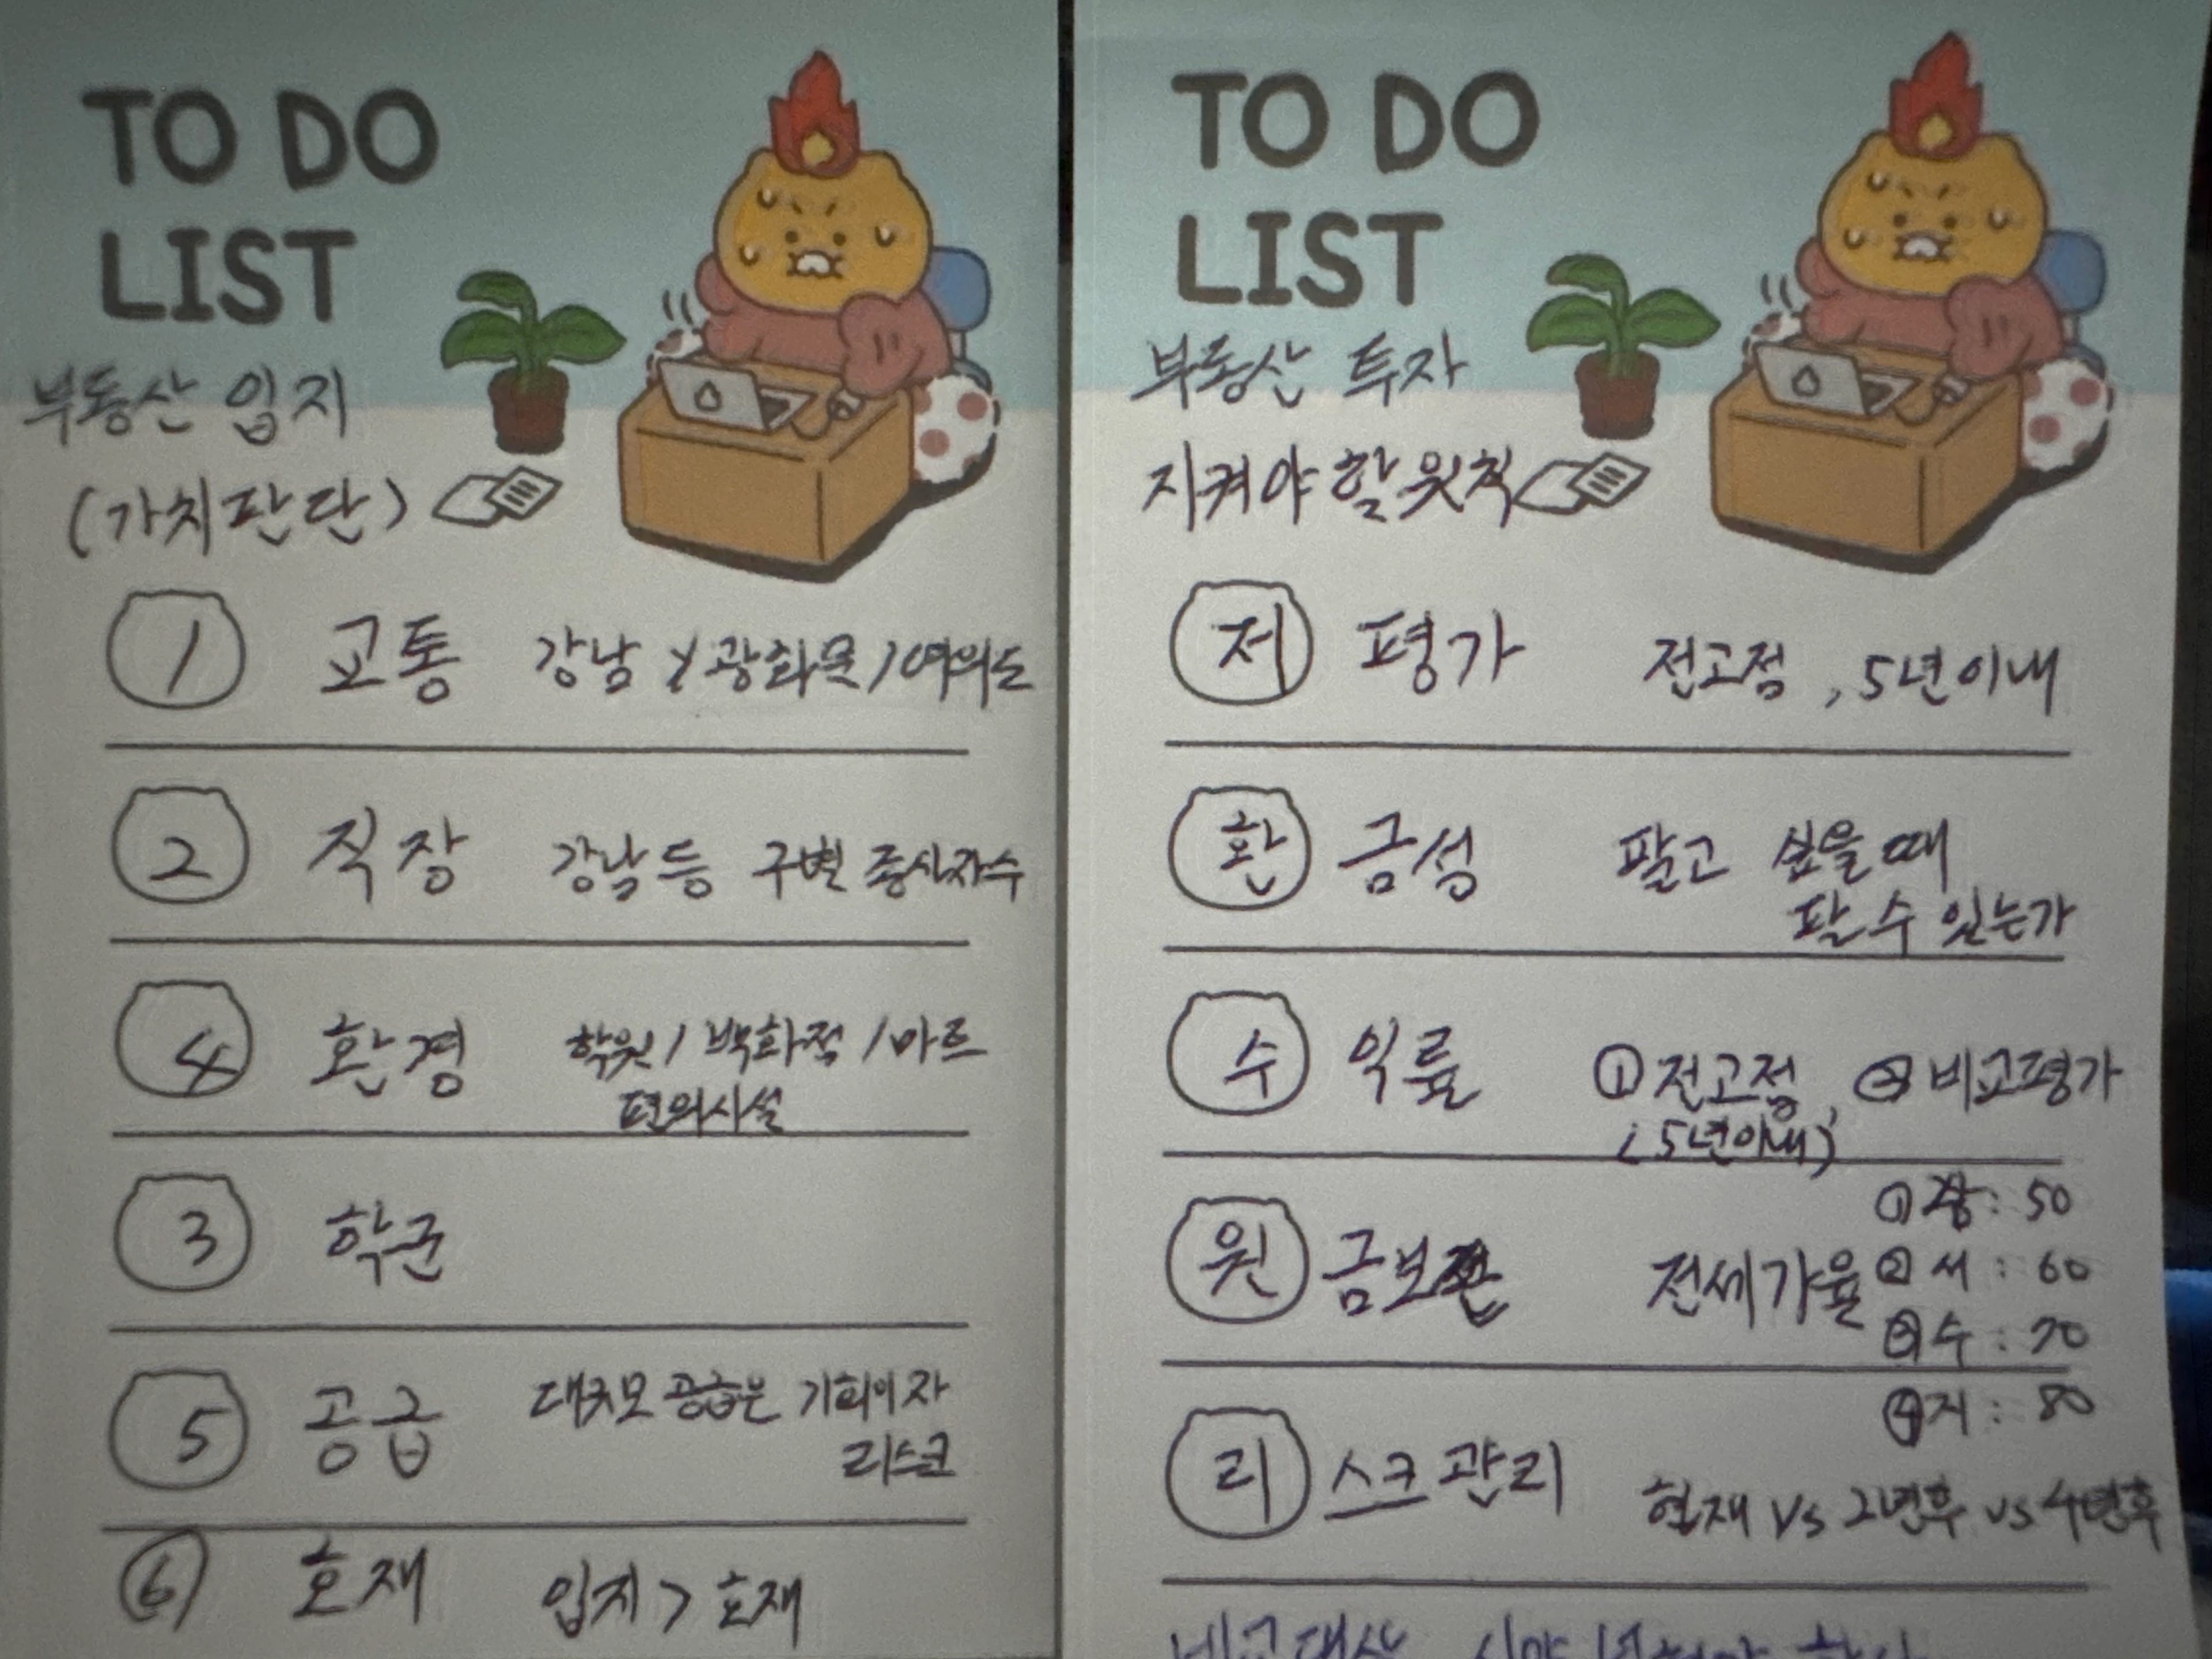 TO DO
LIST
부동산 입지
(가치판단)
1 교통 강남 / 광화문 / 여의도
2 직장 강남 등 구별 종사자수
4 환경 학원 / 백화점 / 마트
편의시설
3 학군
5 공급 대규모 공급은 기회이자
리스크
6 호재 입지 > 호재
TO DO
LIST
부동산 투자
지켜야 할 원칙
저 평가 전고점, 5년이내
환 금성 팔고 싶을 때
팔 수 있는가
수 익률 ① 전고점, ② 비교평가
(5년이내)
원 금보전 전세가율 ① 광: 50
② 서: 60
③ 수: 70
④ 지: 80
리 스크 관리 현재 vs 2년후 vs 4년후
비교대상